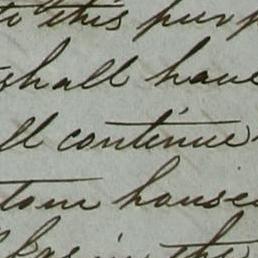 to this purp
shall have
ll continue
tom houses
in the